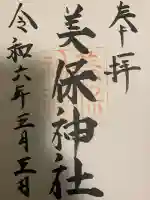 奉拝
美保神社
令和六年三月三日